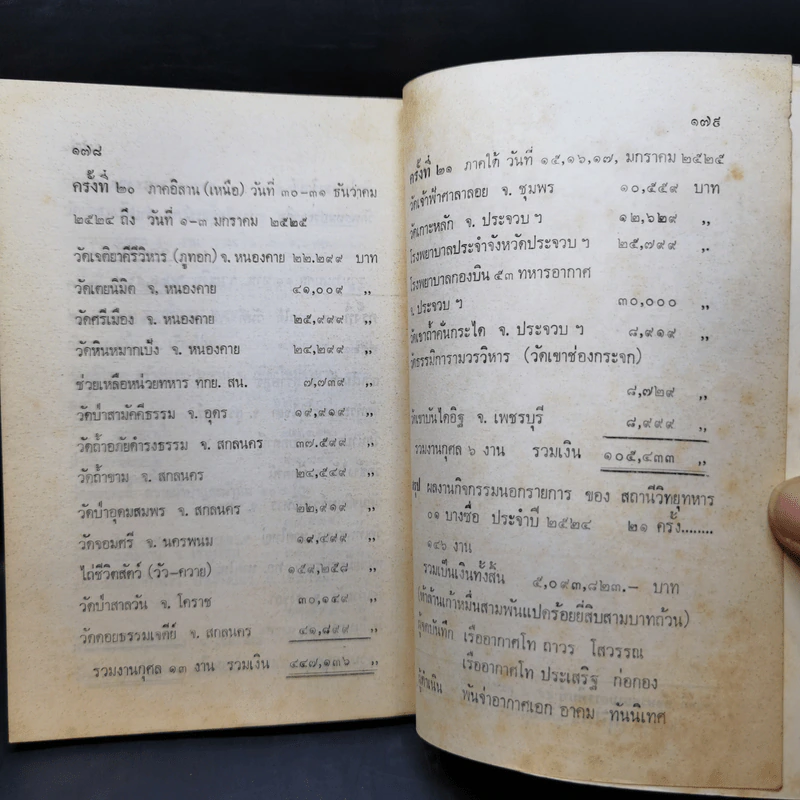 ๑๗๘
ครั้งที่ ๒๐ ภาคอิสาน (เหนือ) วันที่ ๓๐-๓๑ ธันวาคม
๒๕๒๔ ถึง วันที่ ๑-๓ มกราคม ๒๕๒๕
วัดเจติยาคีรีวิหาร (ภูทอก) จ. หนองคาย ๒๒.๒๙๙ บาท
วัดเตยนิมิต จ. หนองคาย ๔๑,๐๐๙ ,,
วัดศรีเมือง จ. หนองคาย ๒๕,๙๙๙ ,,
วัดหินหมากเป้ง จ. หนองคาย ๒๔,๒๙๙ ,,
ช่วยเหลือหน่วยทหาร ทกย. สน. ๗,๗๓๙ ,,
วัดป่าสามัคคีธรรม จ. อุดร ๑๙,๙๑๙ ,,
วัดถ้ำอภัยดำรงธรรม จ. สกลนคร ๓๗.๕๙๙ ,,
วัดถ้ำขาม จ. สกลนคร ๒๔,๕๔๙ ,,
วัดป่าอุดมสมพร จ. สกลนคร ๒๒,๙๑๙ ,,
วัดจอมศรี จ. นครพนม ๑๙,๔๙๙ ,,
ไถ่ชีวิตสัตว์ (วัว-ควาย) ๑๕๙,๒๕๘ ,,
วัดป่าสาลวัน จ. โคราช ๓๐,๑๔๙ ,,
วัดดอยธรรมเจดีย์ จ. สกลนคร ๔๑,๘๙๙ ,,
รวมงานกุศล ๑๓ งาน รวมเงิน ๔๔๗,๑๓๖ ,,
๑๗๙
ครั้งที่ ๒๑ ภาคใต้ วันที่ ๑๕,๑๖,๑๗, มกราคม ๒๕๒๕
วัดเจ้าฟ้าศาลาลอย จ. ชุมพร ๑๐,๕๕๙ บาท
วัดเกาะหลัก จ. ประจวบ ฯ ๑๒,๖๒๙ ,,
โรงพยาบาลประจำจังหวัดประจวบ ฯ ๒๕,๗๙๙ ,.
โรงพยาบาลกองบิน ๕๓ ทหารอากาศ
จ. ประจวบ ฯ ๓๐,๐๐๐ ,,
วัดเขาถ้ำคั่นกระได จ. ประจวบ ฯ ๘,๙๑๙ ,,
วัดธรรมิการามวรวิหาร (วัดเขาช่องกระจก)
๘,๗๒๙ ,,
วัดเขาบันไดอิฐ จ. เพชรบุรี ๘,๙๙๙ ,,
รวมงานกุศล ๖ งาน รวมเงิน ๑๐๕,๔๓๓ ,,
สรุป ผลงานกิจกรรมนอกรายการ ของ สถานีวิทยุทหาร
๐๑ บางซื่อ ประจำปี ๒๕๒๔ ๒๑ ครั้ง........
๑๔๖ งาน
รวมเป็นเงินทั้งสิ้น ๕,๐๙๓,๘๒๓.- บาท
(ห้าล้านเก้าหมื่นสามพันแปดร้อยยี่สิบสามบาทถ้วน)
ผู้จดบันทึก เรืออากาศโท ถาวร โสวรรณ
เรืออากาศโท ประเสริฐ ก่อกอง
ผู้ดำเนิน พันจ่าอากาศเอก อาคม ทันนิเทศ